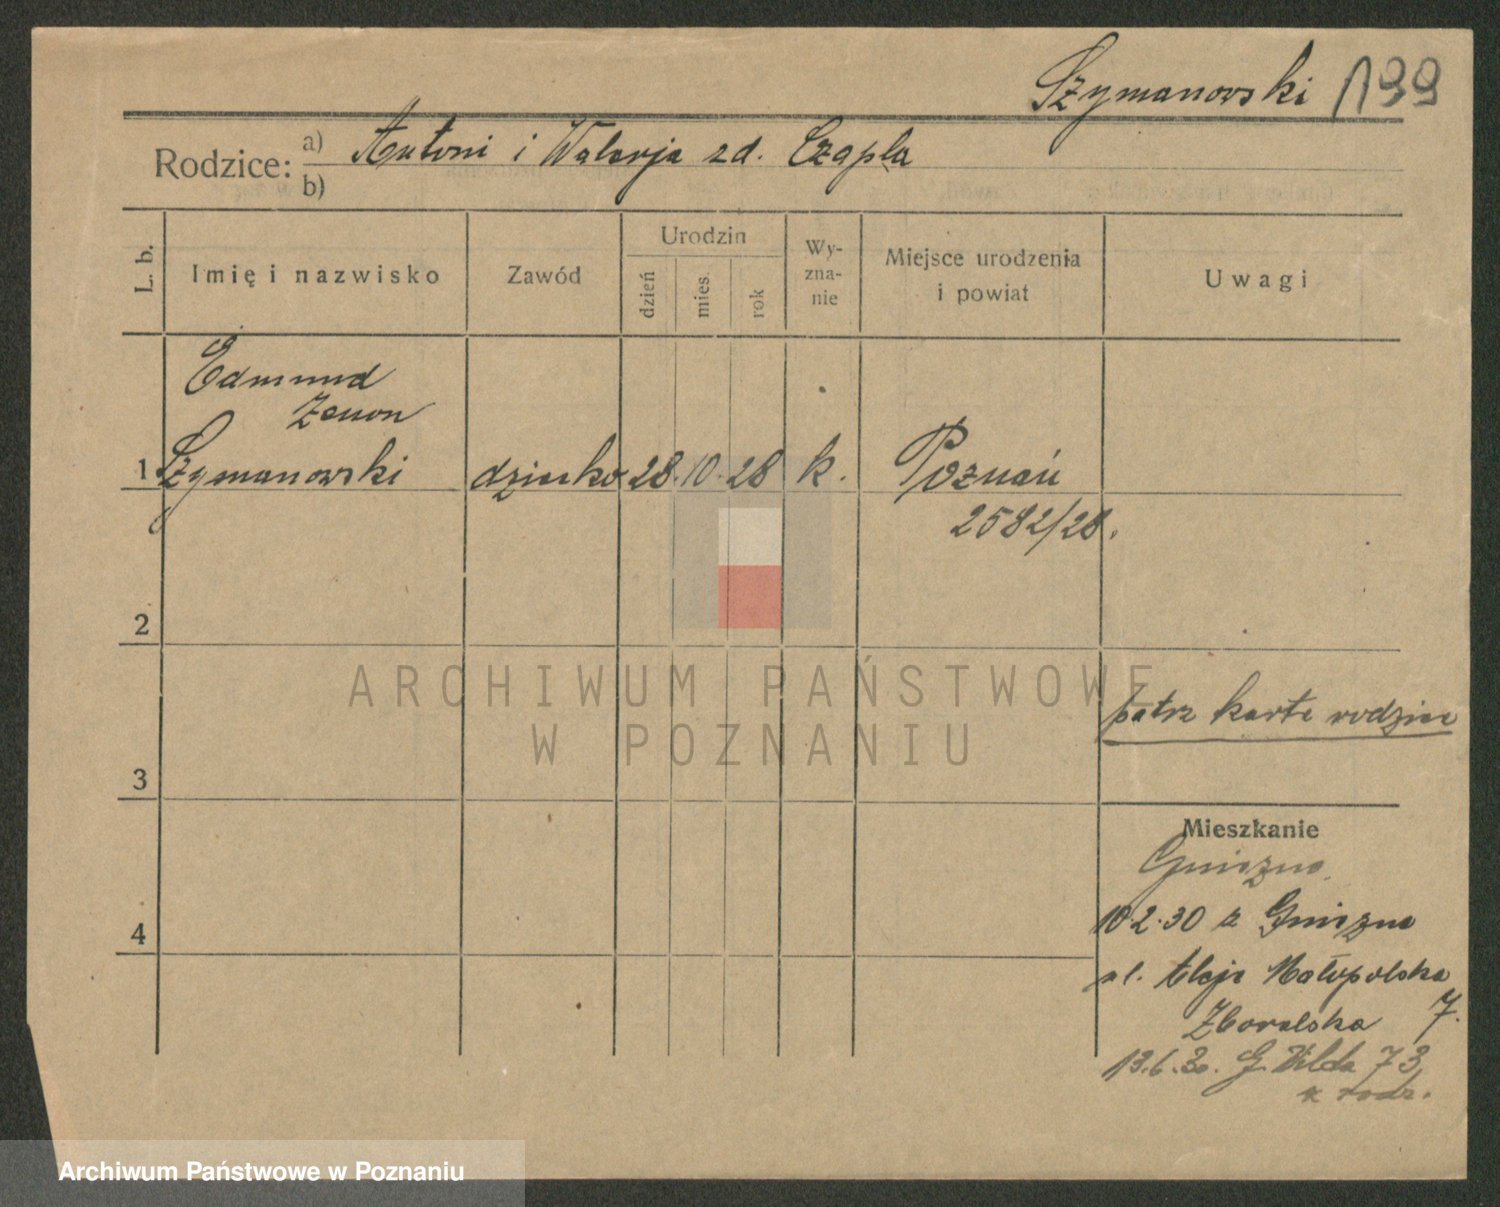 Szymanowski 199
Rodzice: a) Antoni i Walerja zd. Czapla
b)
L. b. Imię i nazwisko Zawód Urodzin dzień mies. rok Wy-zna-nie Miejsce urodzenia i powiat Uwagi
Edmund
Zenon
1 Szymanowski dziecko 28. 10. 28 k. Poznań
2582/28.
2
ARCHIWUM PAŃSTWOWE
W POZNANIU
patrz karte rodzice
3
Mieszkanie
Gniezno.
10.2.30 z Gniezno
4
Małopolska
7.
13.6.30. G. Wilda 73
z rodz.
Archiwum Państwowe w Poznaniu